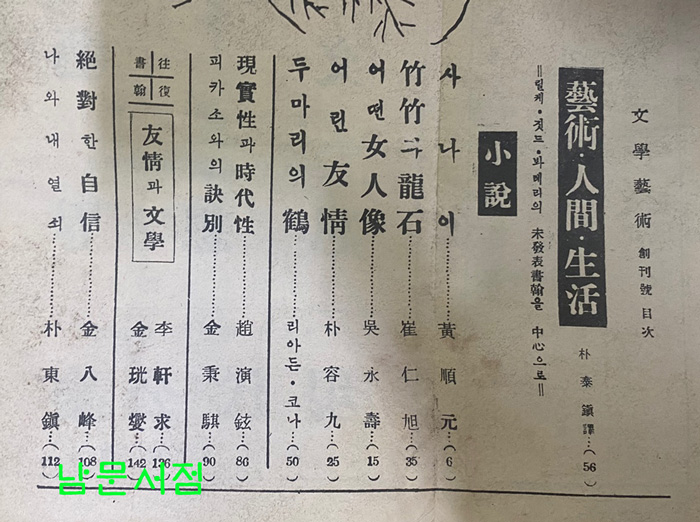 文學藝術 創刊號 目次
藝術·人間·生活 朴泰鎭譯…(56)
=릴케·짓드·와레리의 未發表書翰을 中心으로=
小說
사나이…黃順元…(6)
竹竹과 龍石…崔仁旭…(35)
어떤 女人像…吳永壽…(15)
어린 友情…朴容九…(25)
두마리의 鶴…리아든·코나…(50)
現實性과 時代性…趙演鉉…(86)
피카소와의 訣別…金秉騏…(90)
往復書翰
友情과 文學
李軒求…(136)
金珖燮…(142)
絕對한 自信…金八峰…(108)
나와 내 열쇠…朴東鎭…(112)
남문서점